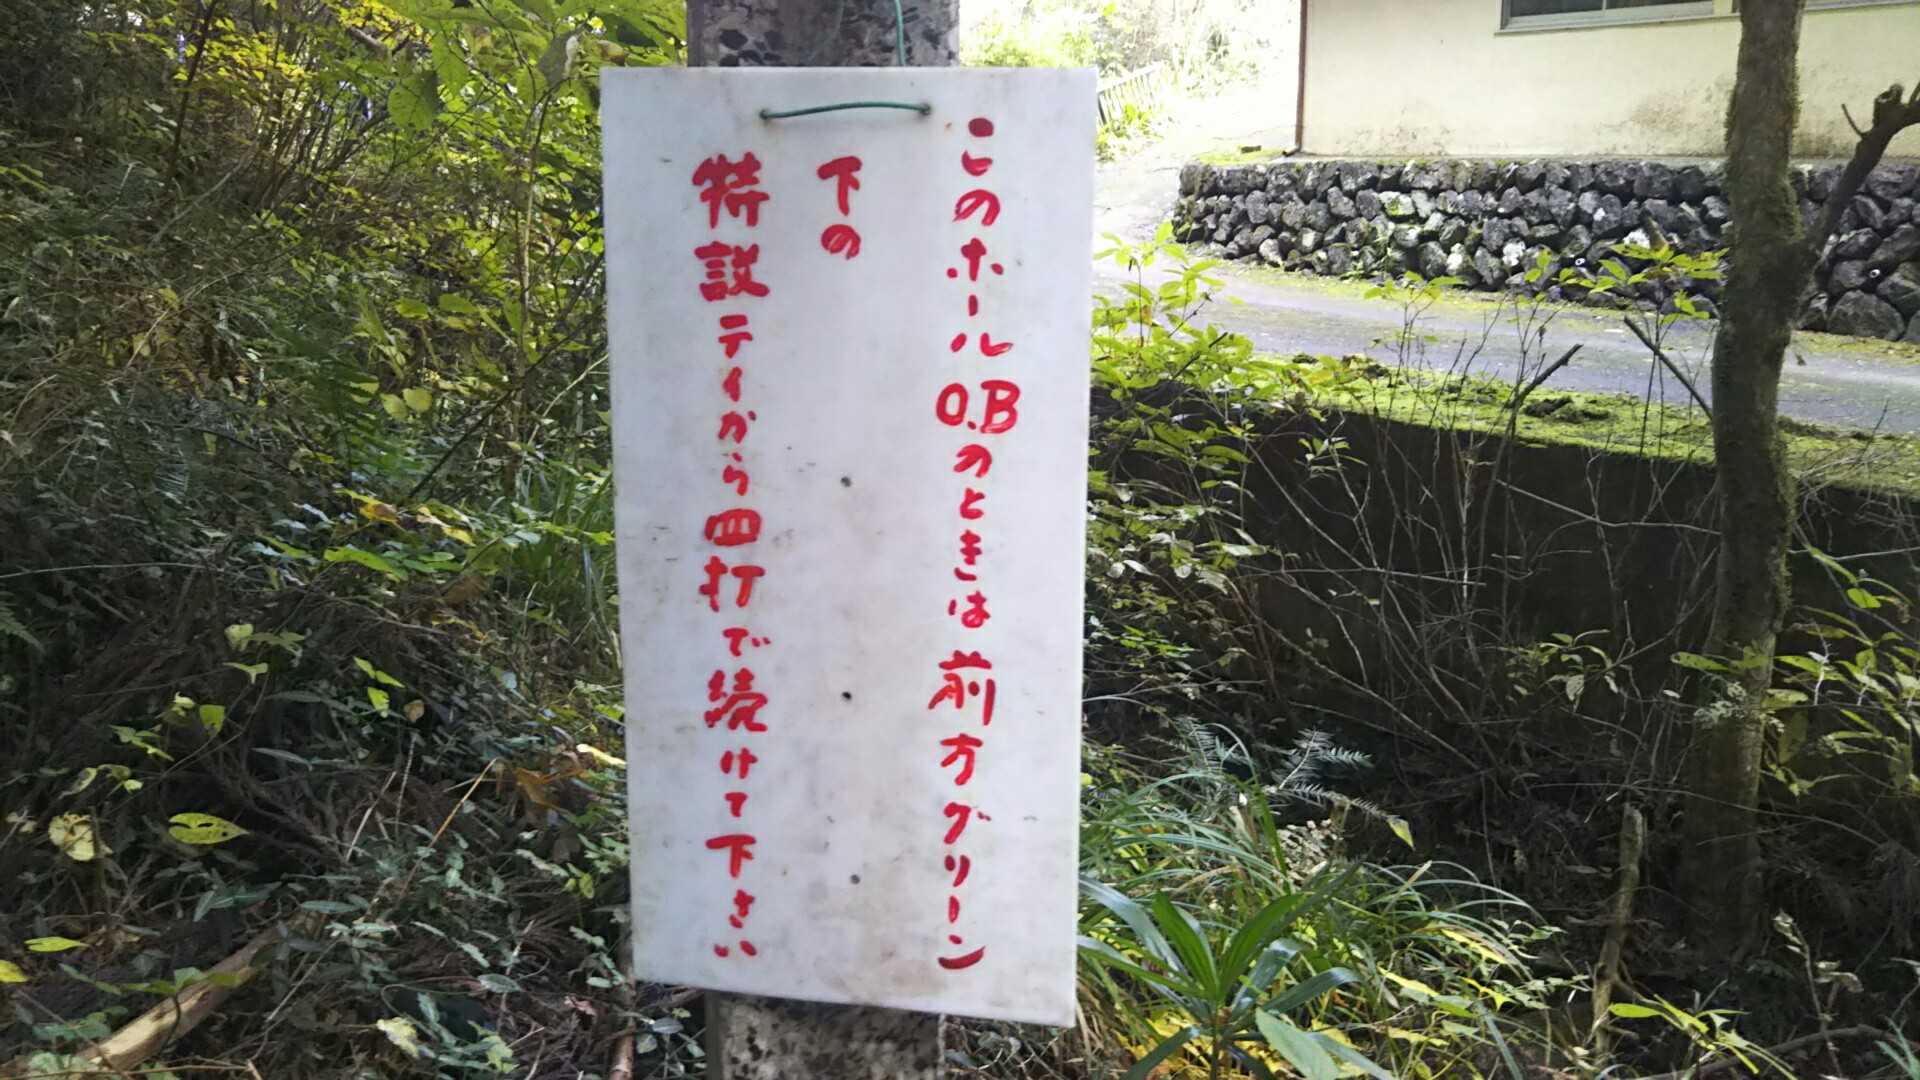 このホールO.Bのときは前方グリーン
下の
特設ティから四打で続けて下さい